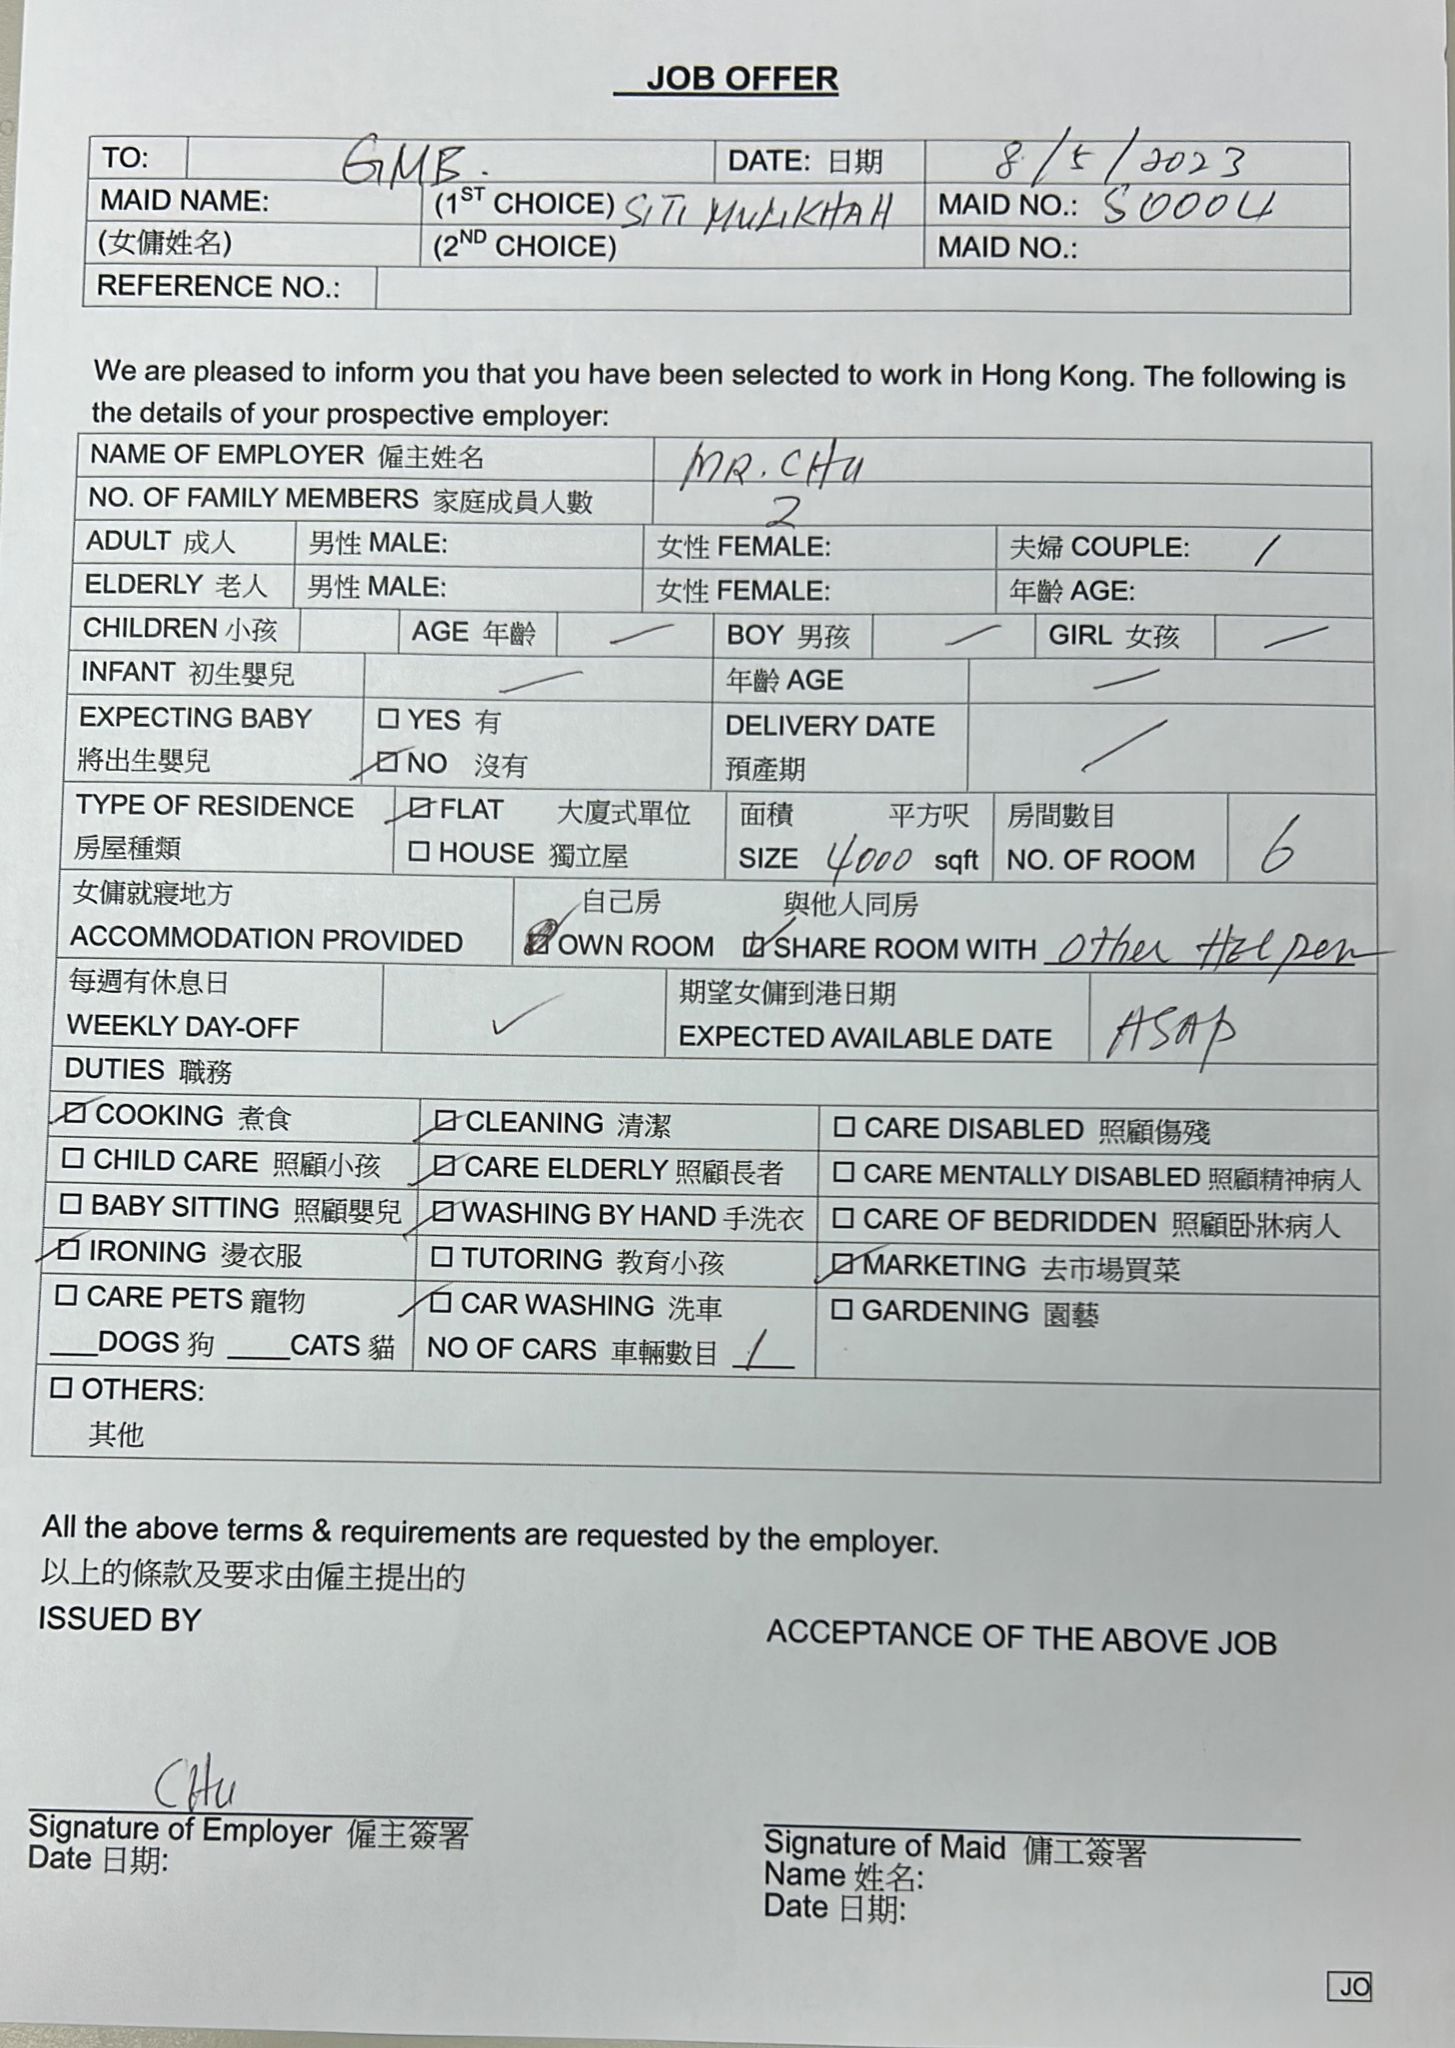 JOB OFFER
TO: GMB. DATE: 日期 8/5/2023
MAID NAME: (1ST CHOICE) SITI MULIKHAH MAID NO.: S0004
(女傭姓名) (2ND CHOICE) MAID NO.:
REFERENCE NO.:
We are pleased to inform you that you have been selected to work in Hong Kong. The following is
the details of your prospective employer:
NAME OF EMPLOYER 僱主姓名 MR. CHU
NO. OF FAMILY MEMBERS 家庭成員人數 2
ADULT 成人 男性 MALE: 女性 FEMALE: 夫婦 COUPLE: /
ELDERLY 老人 男性 MALE: 女性 FEMALE: 年齡 AGE:
CHILDREN 小孩 AGE 年齡 / BOY 男孩 / GIRL 女孩 /
INFANT 初生嬰兒 / 年齡 AGE /
EXPECTING BABY ☐ YES 有 DELIVERY DATE /
將出生嬰兒 ☑ NO 沒有 預產期
TYPE OF RESIDENCE ☑ FLAT 大廈式單位 面積 平方呎 房間數目
房屋種類 ☐ HOUSE 獨立屋 SIZE 4000 sqft NO. OF ROOM 6
女傭就寢地方 自己房 與他人同房
ACCOMMODATION PROVIDED OWN ROOM ☑ SHARE ROOM WITH other HELper
每週有休息日 ✓ 期望女傭到港日期
WEEKLY DAY-OFF EXPECTED AVAILABLE DATE ASAP
DUTIES 職務
☑ COOKING 煮食 ☑ CLEANING 清潔 ☐ CARE DISABLED 照顧傷殘
☐ CHILD CARE 照顧小孩 ☑ CARE ELDERLY 照顧長者 ☐ CARE MENTALLY DISABLED 照顧精神病人
☐ BABY SITTING 照顧嬰兒 ☑ WASHING BY HAND 手洗衣 ☐ CARE OF BEDRIDDEN 照顧卧牀病人
☑ IRONING 燙衣服 ☐ TUTORING 教育小孩 ☑ MARKETING 去市場買菜
☐ CARE PETS 寵物 ☑ CAR WASHING 洗車 ☐ GARDENING 園藝
___DOGS 狗 ____CATS 貓 NO OF CARS 車輛數目 1
☐ OTHERS:
其他
All the above terms & requirements are requested by the employer.
以上的條款及要求由僱主提出的
ISSUED BY ACCEPTANCE OF THE ABOVE JOB
CHU
Signature of Employer 僱主簽署 Signature of Maid 傭工簽署
Date 日期: Name 姓名:
Date 日期:
JO